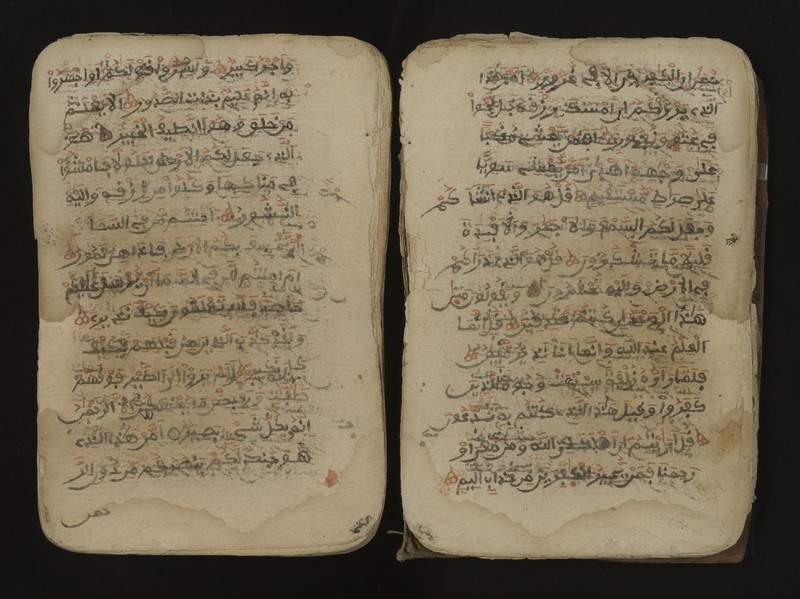 واجر كبير واسروا قولكم او اجهروا
به انه عليم بذات الصدور الا يعلم
من خلق وهو اللطيف الخبير هو
الذي جعل لكم الارض ذلولا فامشوا
في مناكبها وكلوا من رزقه واليه
النشور امنتم من في السما
ان يخسف بكم الارض فاذا هي تمور
ام امنتم من في السما ان يرسل عليكم
حاصبا فستعلمون كيف نذير
ولقد كذب الذين من قبلهم فكيف
كان نكير اولم يروا الى الطير فوقهم
صفت ويقبضن ما يمسكهن الا الرحمن
انه بكل شي بصير امن هذا الذي
هو جند لكم ينصركم من دون الر
حمن
حمن ان الكفرون الا في غرور امن هذا
الذي يرزقكم ان امسك رزقه بل لجوا
في عتو ونفور افمن يمشي مكبا
على وجهه اهدى امن يمشي سويا
على صراط مستقيم قل هو الذي انشاكم
وجعل لكم السمع والابصر والافيدة
قليلا ما تشكرون قل هو الذي ذراكم
في الارض واليه تحشرون ويقولون متى
هذا الوعد ان كنتم صدقين قل انما
العلم عند الله وانما انا نذير مبين
فلما راوه زلفة سيئت وجوه الذين
كفروا وقيل هذا الذي كنتم به تدعون
قل اريتم ان اهلكني الله ومن معي او
رحمنا فمن يجير الكفرين من عذاب اليم